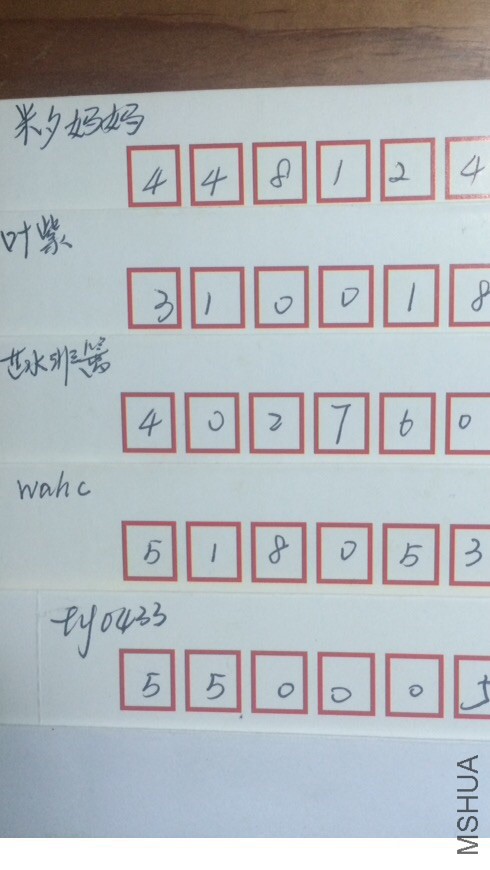 米夕妈妈
448124
叶紫
310018
402760
wahc
518053
ty0433
550005
MSHUA